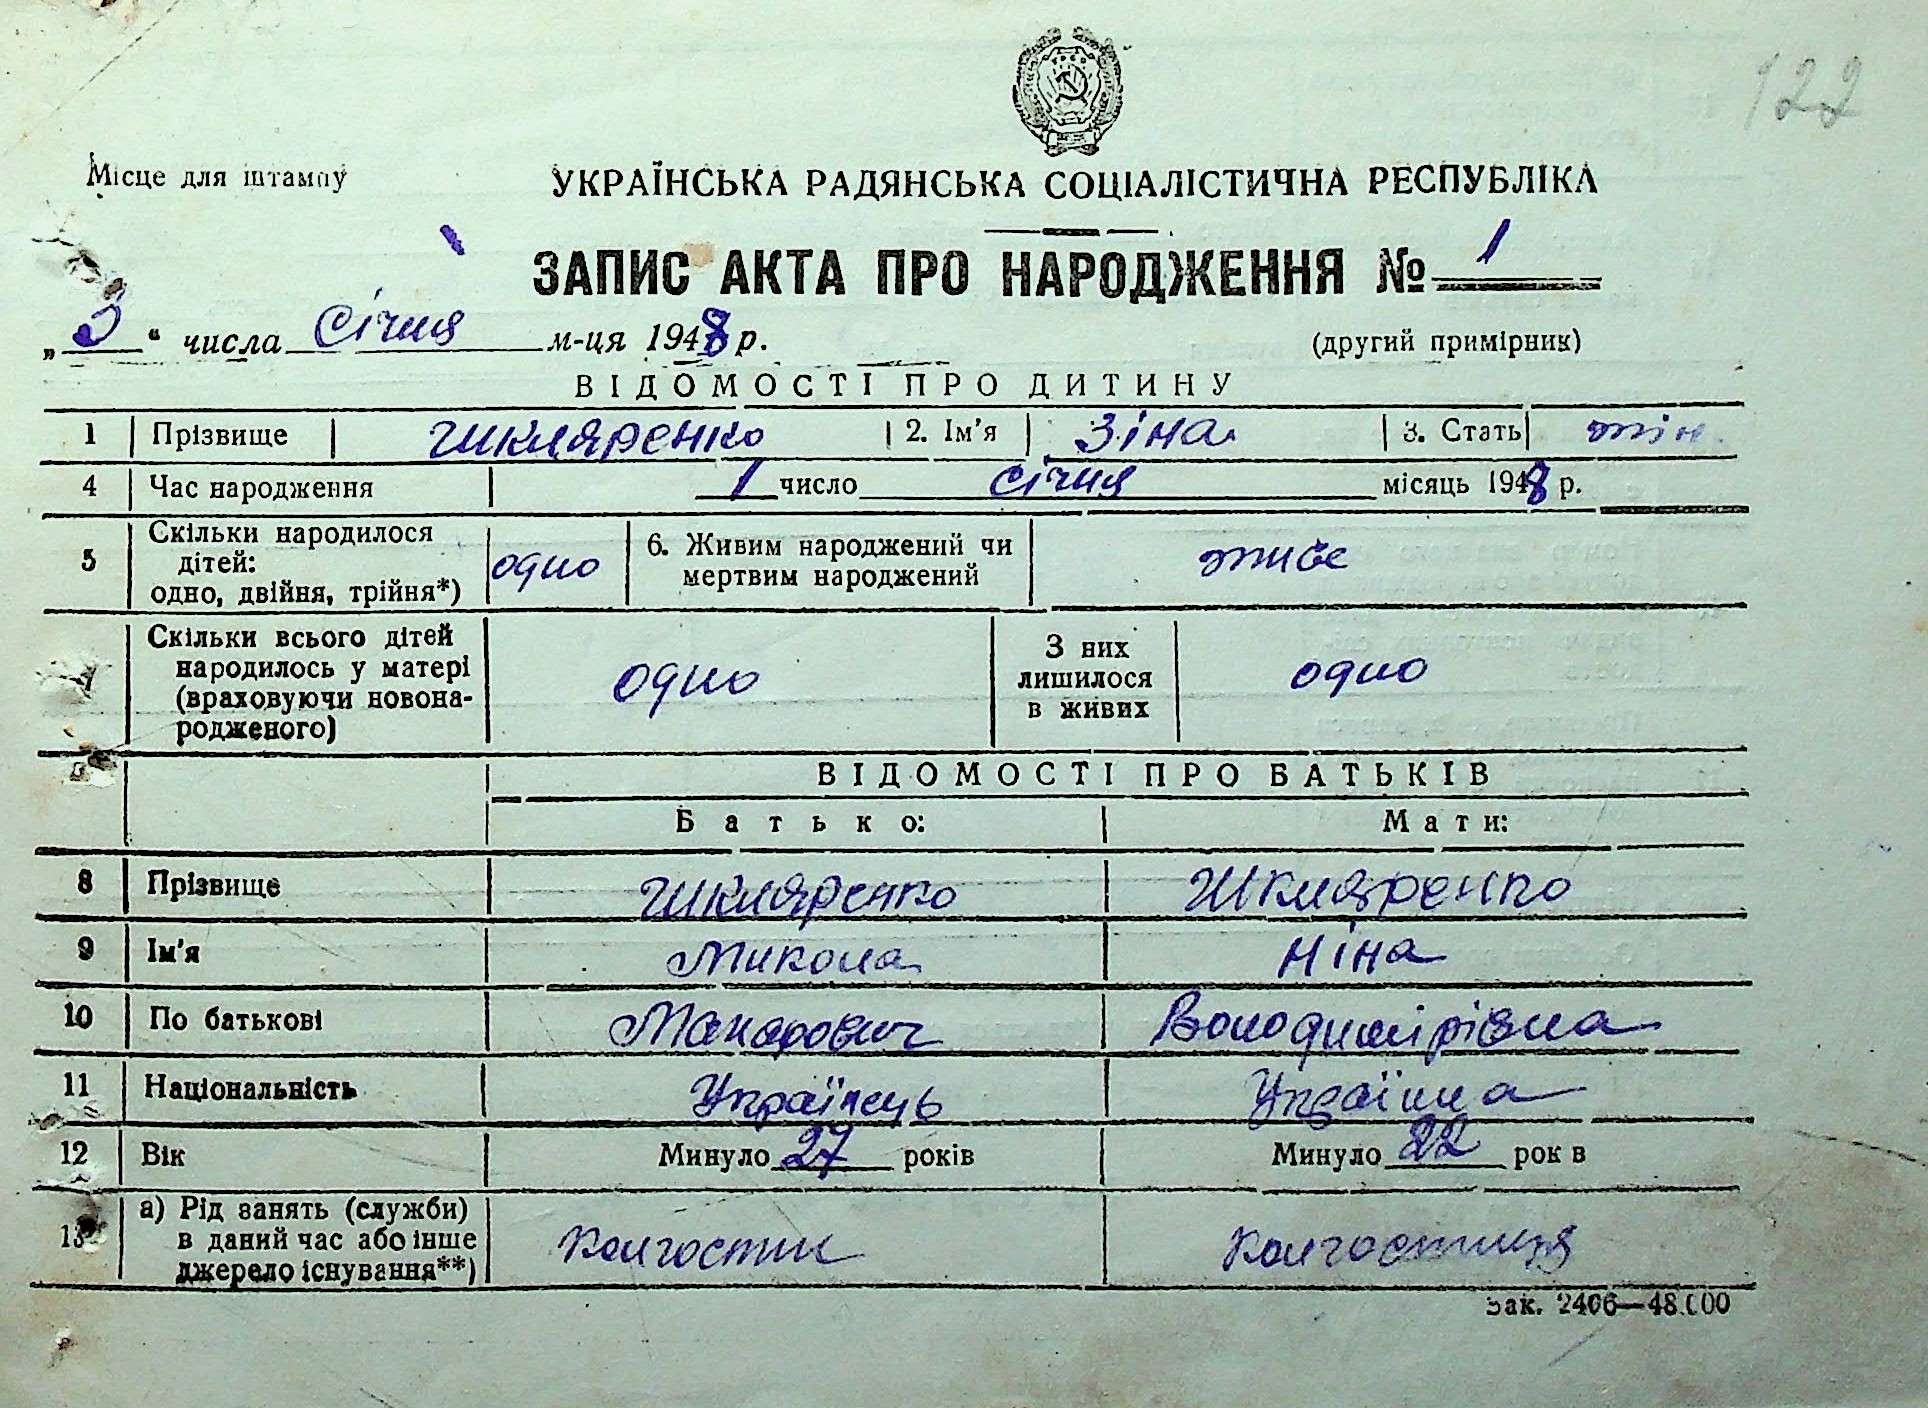 122
Місце для штампу
УКРАЇНСЬКА РАДЯНСЬКА СОЦІАЛІСТИЧНА РЕСПУБЛІКА
ЗАПИС АКТА ПРО НАРОДЖЕННЯ № 1
„ 3 “ числа січня м-ця 1948 р. (другий примірник)
ВІДОМОСТІ ПРО ДИТИНУ
1 Прізвище Шкляренко 2. Ім'я Зіна 3. Стать жін.
4 Час народження 1 число січня місяць 1948 р.
5 Скільки народилося дітей: одно, двійня, трійня*) одно 6. Живим народжений чи мертвим народжений живе
7 Скільки всього дітей народилось у матері (враховуючи новонародженого) одно З них лишилося в живих одно
ВІДОМОСТІ ПРО БАТЬКІВ
Батько: Мати:
8 Прізвище Шкляренко Шкляренко
9 Ім'я Микола Ніна
10 По батькові Макарович Володимірівна
11 Національність Українець Українка
12 Вік Минуло 27 років Минуло 22 рок в
13 а) Рід занять (служби) в даний час або інше джерело існування**) колгостник колгостниця
Зак. 2406—48.000